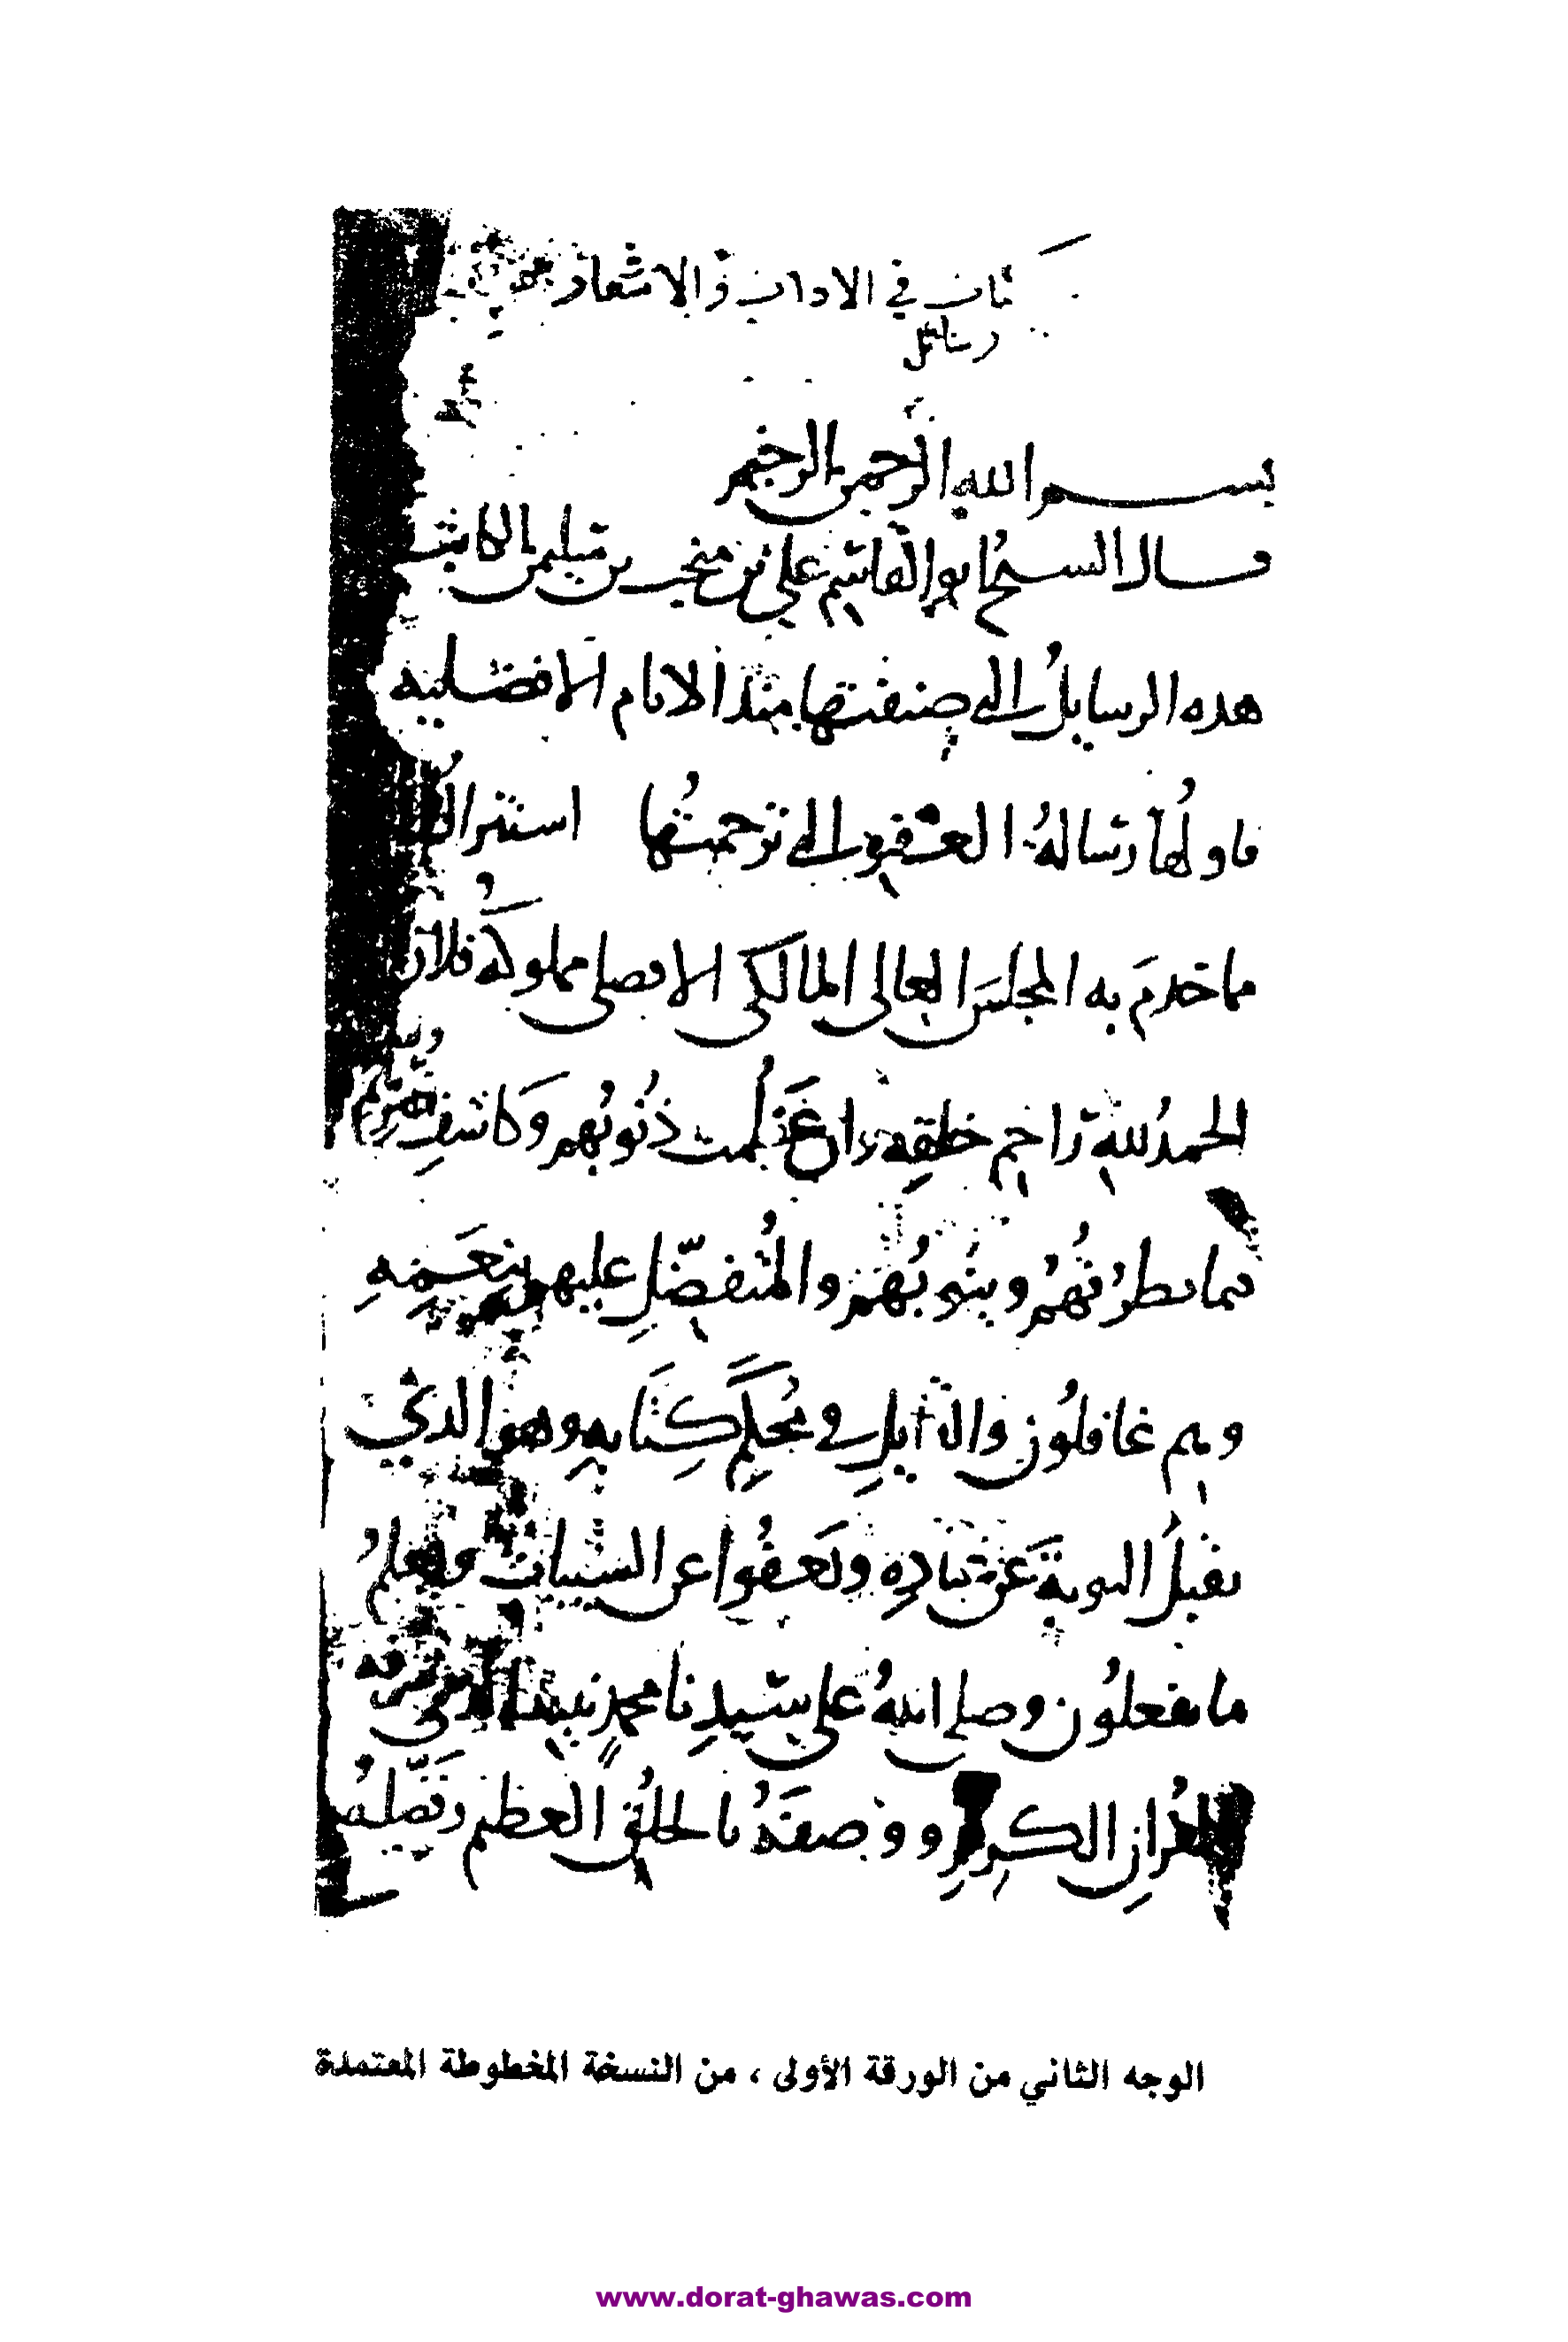 ثمان في الاداب والاشعار
رسائل
بسم الله الرحمن الرحيم
قال الشيخ ابو القاسم علي بن منجب بن سليمن الكاتب
هذه الرسايل التي صنفتها منذ الايام الافضليه
فاولها رسالهُ العفو التي ترجمتُها استنزال
مما خدمَ به المجلسَ العالى المالكى الافضلى مملوكهُ فلان
الحمدُ للهِ راحِمِ خلقِه وان عَظُمت ذُنُوبُهم وَكاشفِ
فيما يطرُقُهُمْ وينُوبُهم والمُتفضّلِ عليهم بنِعَمِهِ
وهم غافلُون والقايلِ في مُحكَمِ كِتَابِهِ وهو الذي
يقبلُ التوبةَ عَن عبادِهِ ويَعفُوا عن السيئات ويعلمُ
ما يفعلُون وصلى اللهُ على سيّدِنا محمدٍ نبيه الذي شرفه
بالقُرانِ الكريمِ ووصفَهُ بالخلُقِ العظيم وفضّلهُ
الوجه الثاني من الورقة الأولى ، من النسخة المخطوطة المعتمدة
www.dorat-ghawas.com